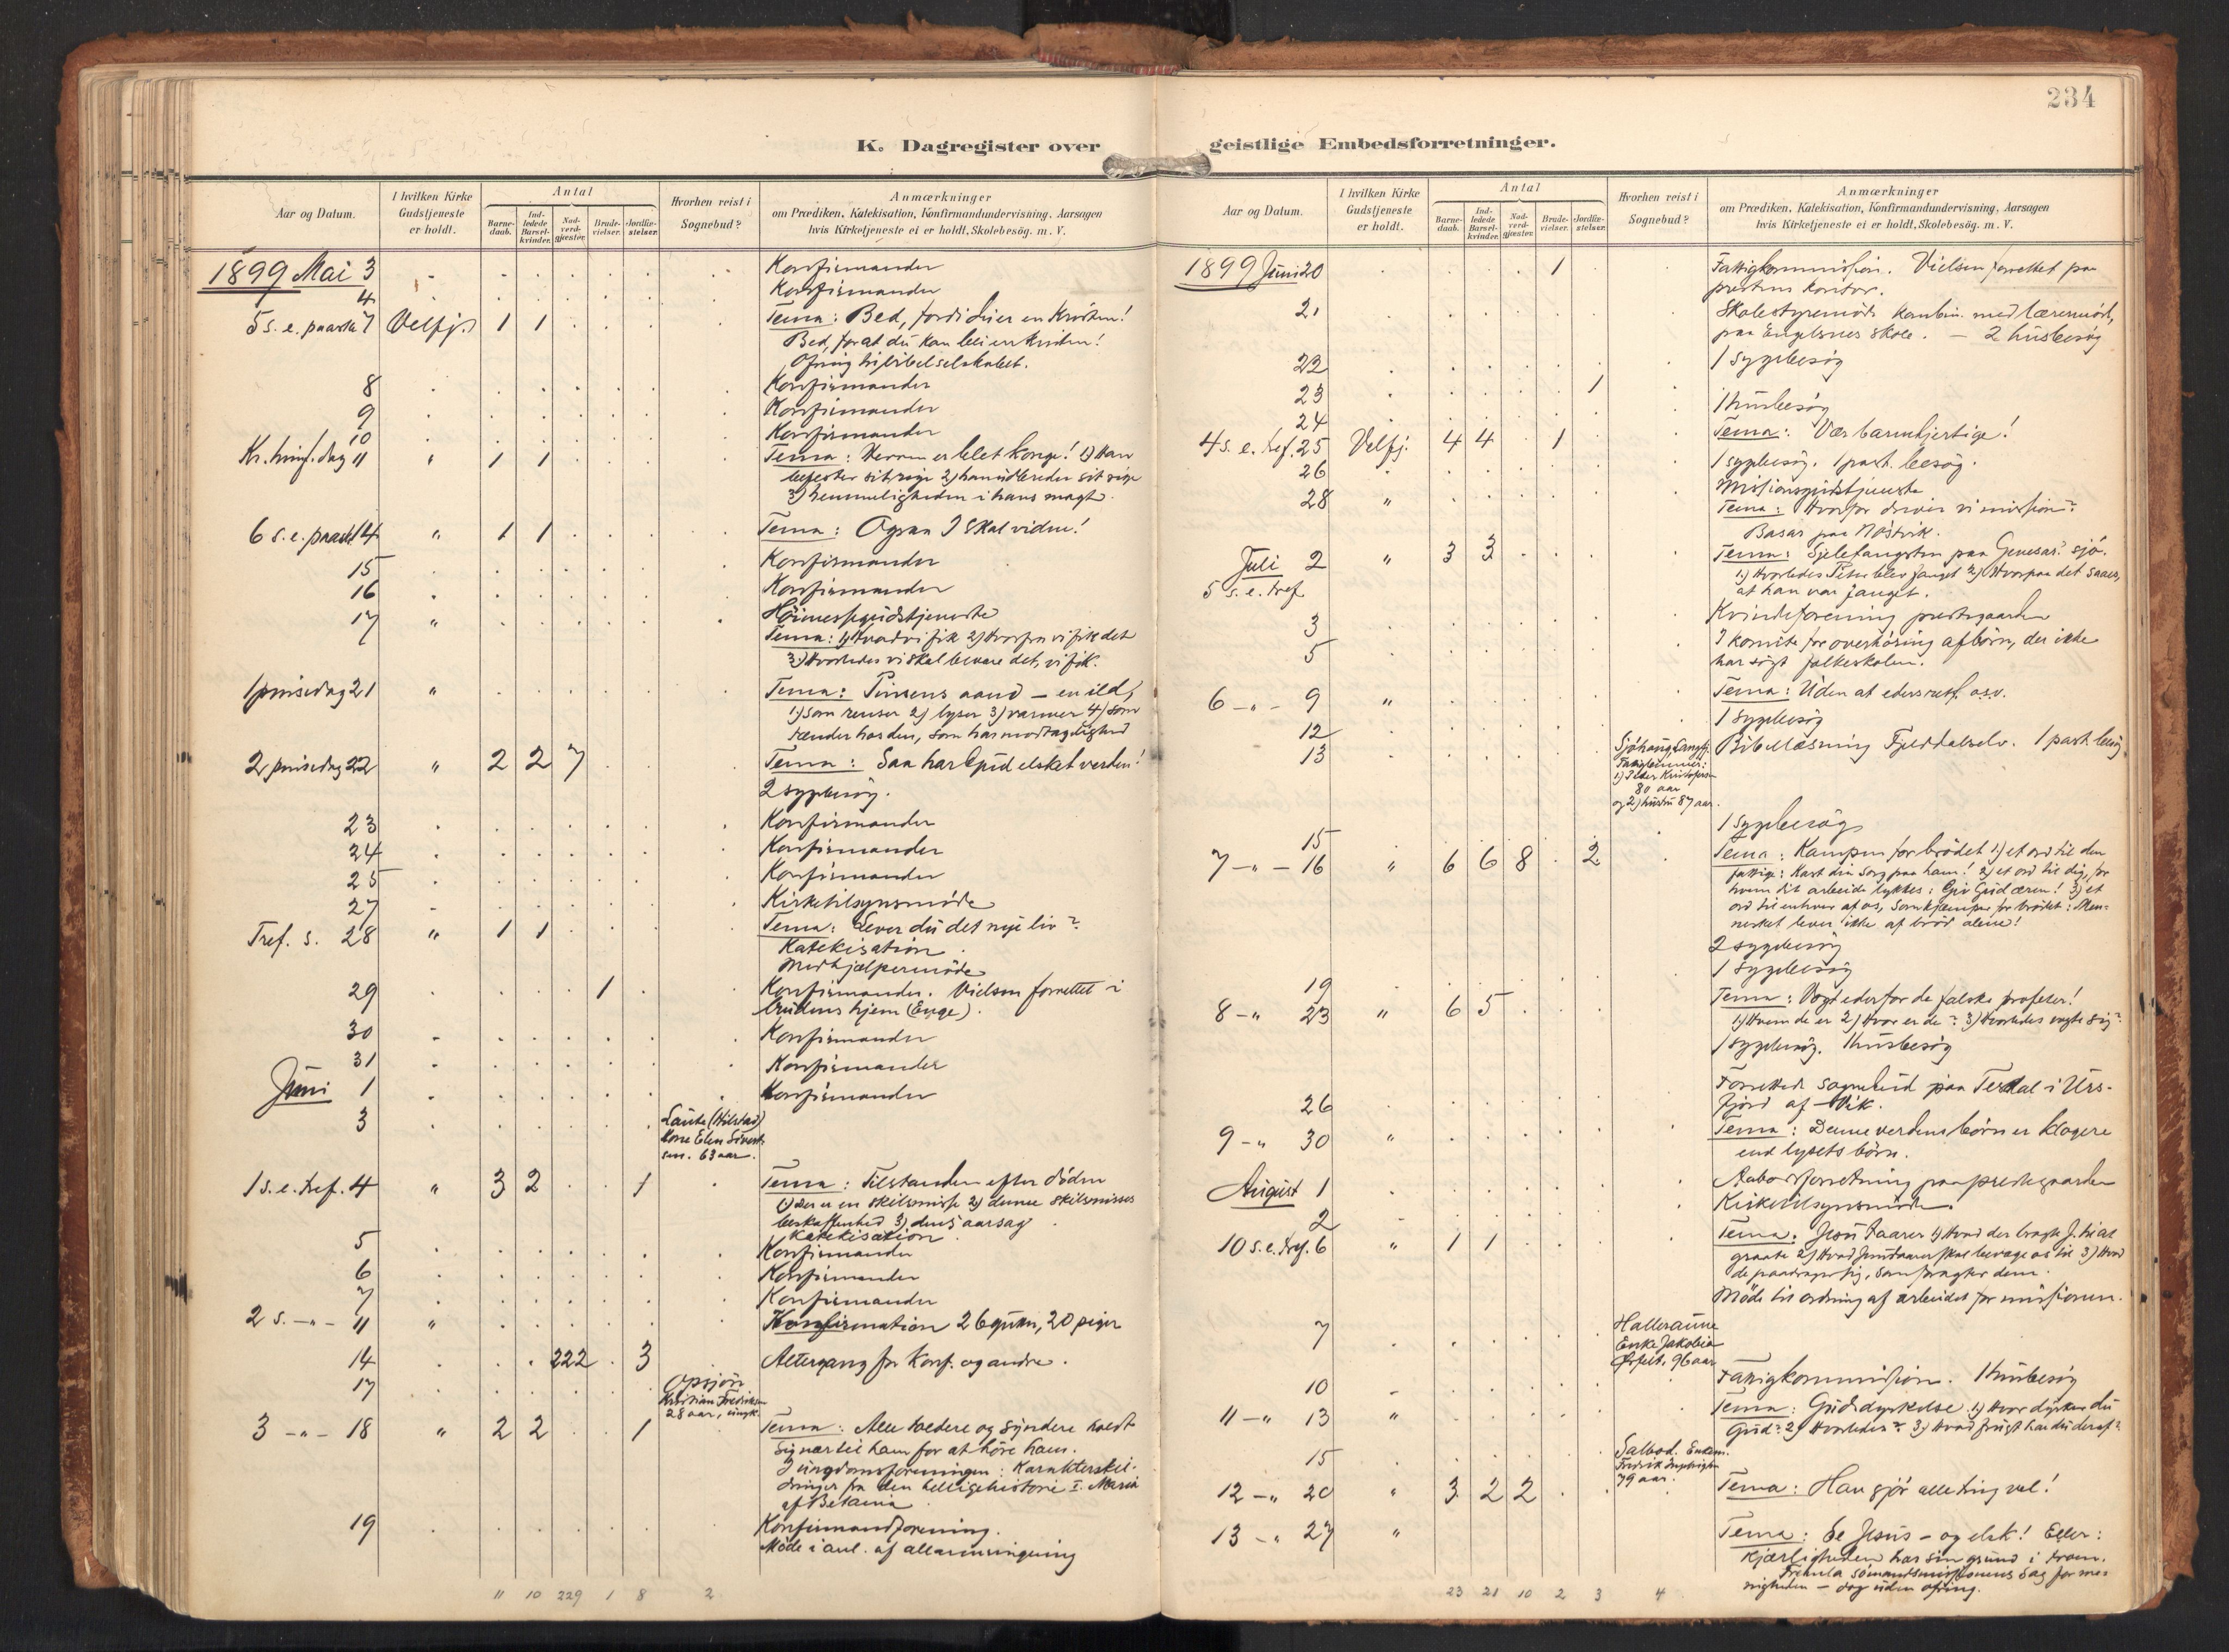 234
K. Dagregister over geistlige Embedsforretninger.
Aar og Datum.
I hvilken Kirke Gudstjeneste er holdt.
Antal
Barne-daab.
Ind-ledede Barsel-kvinder.
Nad-verd-gjæster.
Brude-vielser.
Jordfæ-stelser.
Hvorhen reist i Sognebud?
Anmærkninger
om Prædiken, Katekisation, Konfirmandundervisning, Aarsagen
hvis Kirketjeneste ei er holdt, Skolebesög. m. V.
1899 Mai 3 Konfirmander
4 Konfirmander
5 s. e. paaske 7 Velfj. 1 1 Tema: Bed, fordi du er en kristen!
Bed, forat du kan blive kristen!
Ofring til bibelselskabet.
8 Konfirmander
9 Konfirmander
10 Konfirmander
Kr. himf. dag 11 " 1 1 Tema: Herren er blet konge! 1) Han
befester sit rige 2) han udbreder sit rige
3) hemmeligheden i hans magt.
6 s. e. paaske 14 " 1 1 Tema: Ogsaa I skal vidne!
15 Konfirmander
16 Konfirmander
17 " Höimessegudstjeneste
Tema: 1) Hvad vi fik 2) Hvorfra vi fik det
3) Hvorledes vi skal bevare det, vi fik.
1 pinsedag 21 " Tema: Pinsens aand – en ild,
1) som renser 2) lyser 3) varmer 4) som
tænder hos den, som har modtagelighed
2 pinsedag 22 " 2 2 7 Tema: Saa har Gud elsket verden!
2 sygebesög.
23 Konfirmander
24 Konfirmander
25 Konfirmander
27 Kirketilsynsmöde
Tref. s. 28 " 1 1 Tema: Lever du det nye liv?
Katekisation
Medhjælpermöde
29 1 Konfirmander. Vielsen forrettet i
brudens hjem (Enge).
30 Konfirmander
31 Konfirmander
Juni 1 Konfirmander
3 (Hilstad)
Kone Elen Sivert-
sen. 63 aar.
1 s. e. tref. 4 " 3 2 1 Tema: Tilstanden efter döden
1) Der er en skilsmisse 2) denne skilsmisses
beskaffenhed 3) dens aarsag
Katekisation
5 Konfirmander
6 Konfirmander
7 Konfirmander
2 s. -"- 11 " Konfirmation 26 gutter, 20 piger
14 222 3 Altergang for Konf. og andre.
17 Opsjön
Kristian Fredriksen
28 aar, ungk.
3 -"- 18 " 2 2 1 Tema: Alle toldere og syndere holdt
sig nær til ham for at höre ham.
I ungdomsforeningen: Karakterskil-
dringer fra den hellige historie I. Maria
af Betania
19 Konfirmandforening.
Möde i anl. af
11 10 229 1 8 2
Aar og Datum.
I hvilken Kirke Gudstjeneste er holdt.
Antal
Barne-daab.
Ind-ledede Barsel-kvinder.
Nad-verd-gjæster.
Brude-vielser.
Jordfæ-stelser.
Hvorhen reist i Sognebud?
Anmærkninger
om Prædiken, Katekisation, Konfirmandundervisning, Aarsagen
hvis Kirketjeneste ei er holdt, Skolebesög. m. V.
1899 Juni 20 1 Fattigkommission. Vielsen forrettet paa
prestens kontor.
21 Skolestyremöde kombin. med læremöde,
paa skole. – 2 husbesög
22 1 sygebesög
23 1
24 1 husbesög
4 s. e. tref. 25 Velfj. 4 4 1 Tema: Vær barmhjertige!
26 1 sygebesög. 1 past. besög.
28 " Missionsgudstjeneste
Tema: Hvorfor driver vi mission?
Basar paa Höstvik.
Juli 2 " 3 3 Tema: Sjelefangsten paa Genesar. sjö.
5 s. e. tref 1) Hvorledes Peter blev fanget 2) Hvorpaa det saaes,
at han var fanget.
3 Kvindeforening prestegaarden
5 I komite for overhöring af börn, der ikke
har sögt folkeskolen.
6 -"- 9 " Tema: Uden at eders retf. o.s.v.
12 1 sygebesög
13 Sjöhaug Langfj.
1) Peder Kristofersen
80 aar
og 2) hustru 87 aar.
Bibellæsning Fjeldalselv. 1 past. besög
15 1 sygebesög
7 -"- 16 " 6 6 8 2 Tema: Kampen for brödet 1) et ord til den
fattige: Kast din sorg paa ham! 2) et ord til dig, for
hvem dit arbeide lykkes: Giv Gud æren! 3) et
ord til enhver af os, som kjæmper for brödet: Men-
nesket lever ikke af bröd alene!
2 sygebesög
19 1 sygebesög
8 -"- 23 " 6 5 Tema: Vogt eder for de falske profeter!
1) Hvem de er 2) Hvor er de? 3) Hvorledes vogte sig?
1 sygebesög. 1 husbesög
26 Forrettede sognebud paa Terdal i Urs-
fjord af Vik.
9 -" 30 " Tema: Denne verdens börn er klogere
end lysets börn.
August 1 Aabodsforretning paa prestegaarden
2 Kirketilsynsmöde.
10 s. e. tref. 6 " 1 1 Tema: Jesu taarer 1) Hvad der bragte J. til at
graate 2) Hvad Jesu taarer skal bevæge os til 3) Hvad
de paadrager sig, som foragter dem.
Möde til ordning af arbeidet for missionen.
7 Halleraune
Enke Jakobia
96 aar
10 Fattigkommission. 1 husbesög
11 -" 13 " Tema: Gudsdyrkelse. 1) Hvor dyrker du
Gud? 2) Hvorledes? 3) Hvad frugt har du deraf?
15 Salbod. Enkem.
Fredrik
79 aar.
12 -" 20 " 3 2 2 Tema: Han gjör alle ting vel!
13 -" 27 " Tema: Se Jesus – og elsk! Eller:
Kjærligheden har sin grund i troen.
Fremla sömandsmissionens sag for me-
nigheden – dog uden ofring.
23 21 10 2 3 4